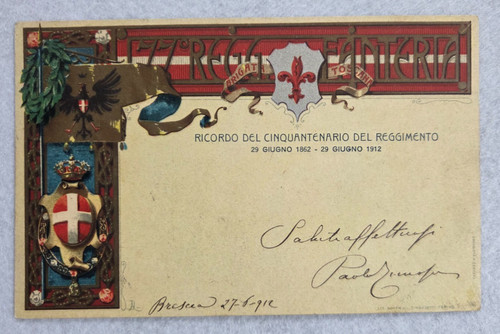 77° REGG. FANTERIA
BRIGAT TOSCANA
RICORDO DEL CINQUANTENARIO DEL REGGIMENTO
29 GIUGNO 1862 - 29 GIUGNO 1912
Saluti affettuosi
Paolo
Brescia 27-6-912